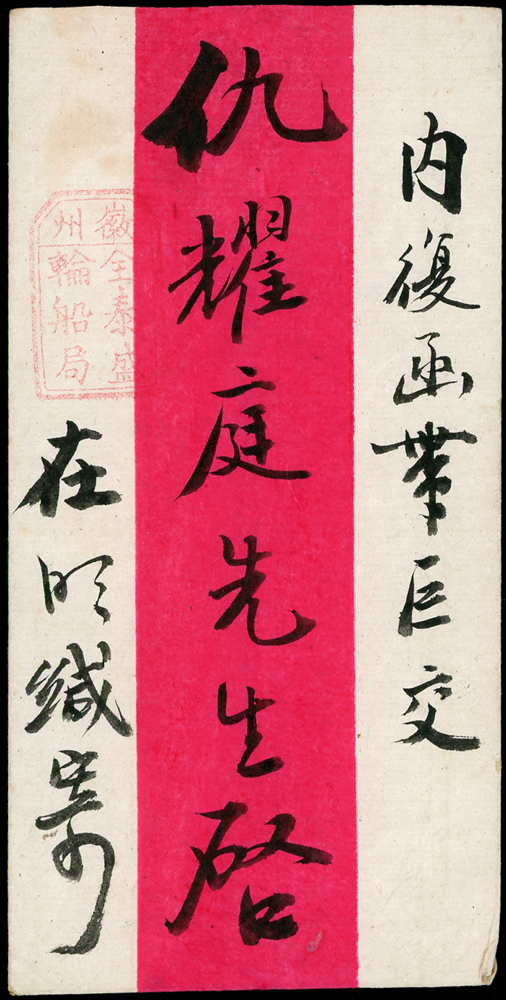 内復函帶巨交
仇耀庭先生啓
徽全泰盛
州輪船局
在明緘寄